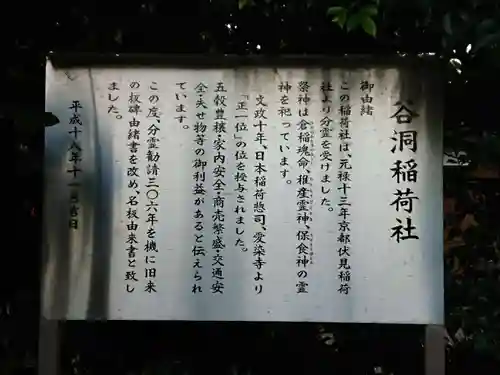 谷洞稲荷社
御由緒
この稲荷社は、元禄十三年京都伏見稲荷
社より分霊を受けました。
祭神は倉稲魂命、椎産霊神、保食神の霊
神を祀っています。
文政十年、日本稲荷惣司、愛染寺より
「正一位」の位を授与されました。
五穀豊穣・家内安全・商売繁盛・交通安
全・失せ物等の御利益があると伝えられ
ています。
この度、分霊勧請三〇六年を機に旧来
の板碑由緒書を改め、名板由来書と致し
ました。
平成十八年十一月吉日